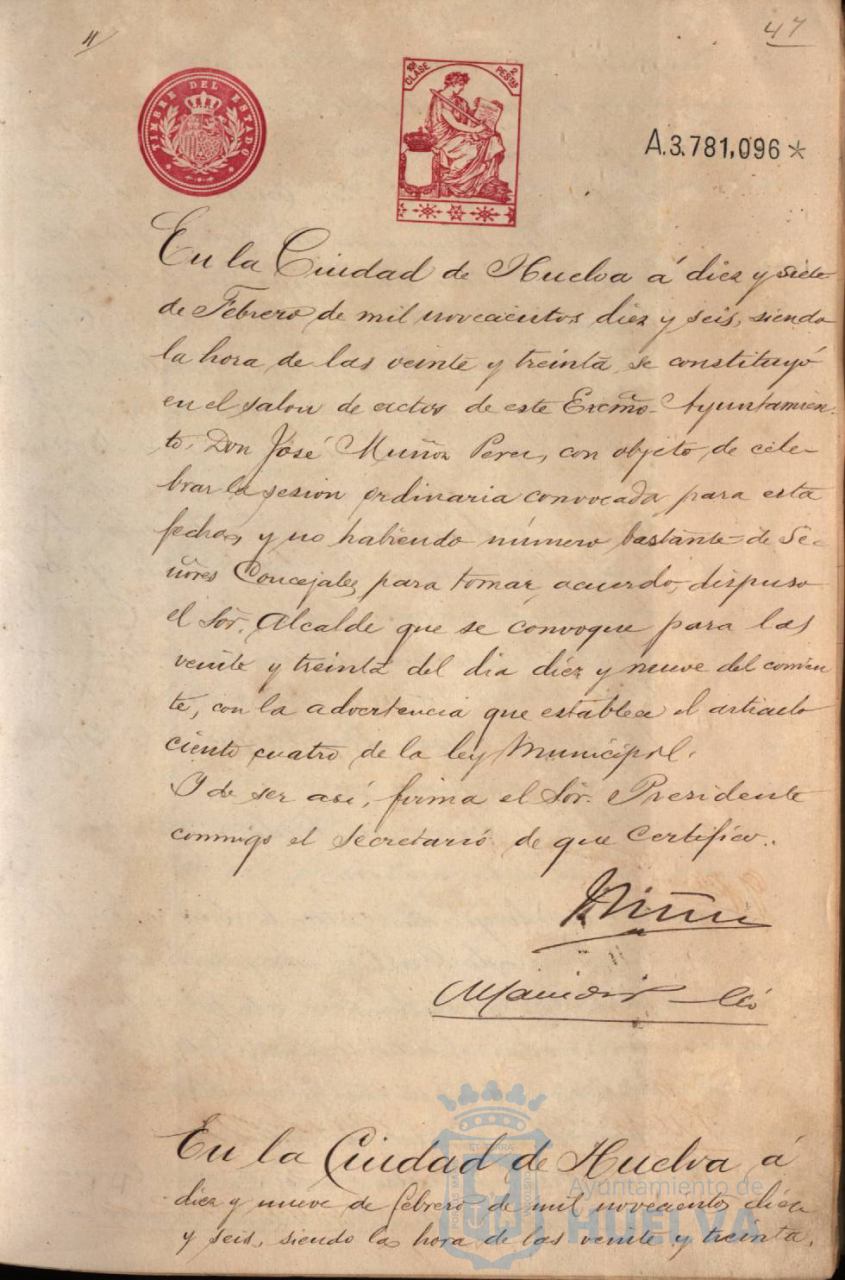 47
TIMBRE DEL ESTADO
10ª CLASE 2 PESTAS
A.3.781,096*
En la Ciudad de Huelva á diez y siete
de Febrero de mil novecientos diez y seis, siendo
la hora de las veinte y treinta se constituyó
en el salon de actos de este Excmo. Ayuntamien-
to, Don José Muñoz Perez, con objeto de cele-
brar la sesion ordinaria convocada para esta
fecha, y no habiendo número bastante de Se-
ñores Concejales para tomar acuerdo, dispuso
el Sor. Alcalde que se convoque para las
veinte y treinta del dia diez y nueve del corrien-
te, con la advertencia que establece el articulo
ciento cuatro de la ley Municipal.
Y de ser así, firma el Sor. Presidente
conmigo el Secretario de que Certifico.
En la Ciudad de Huelva á
diez y nueve de febrero de mil novecientos diez
y seis, siendo la hora de las veinte y treinta,
Ayuntamiento de
HUELVA